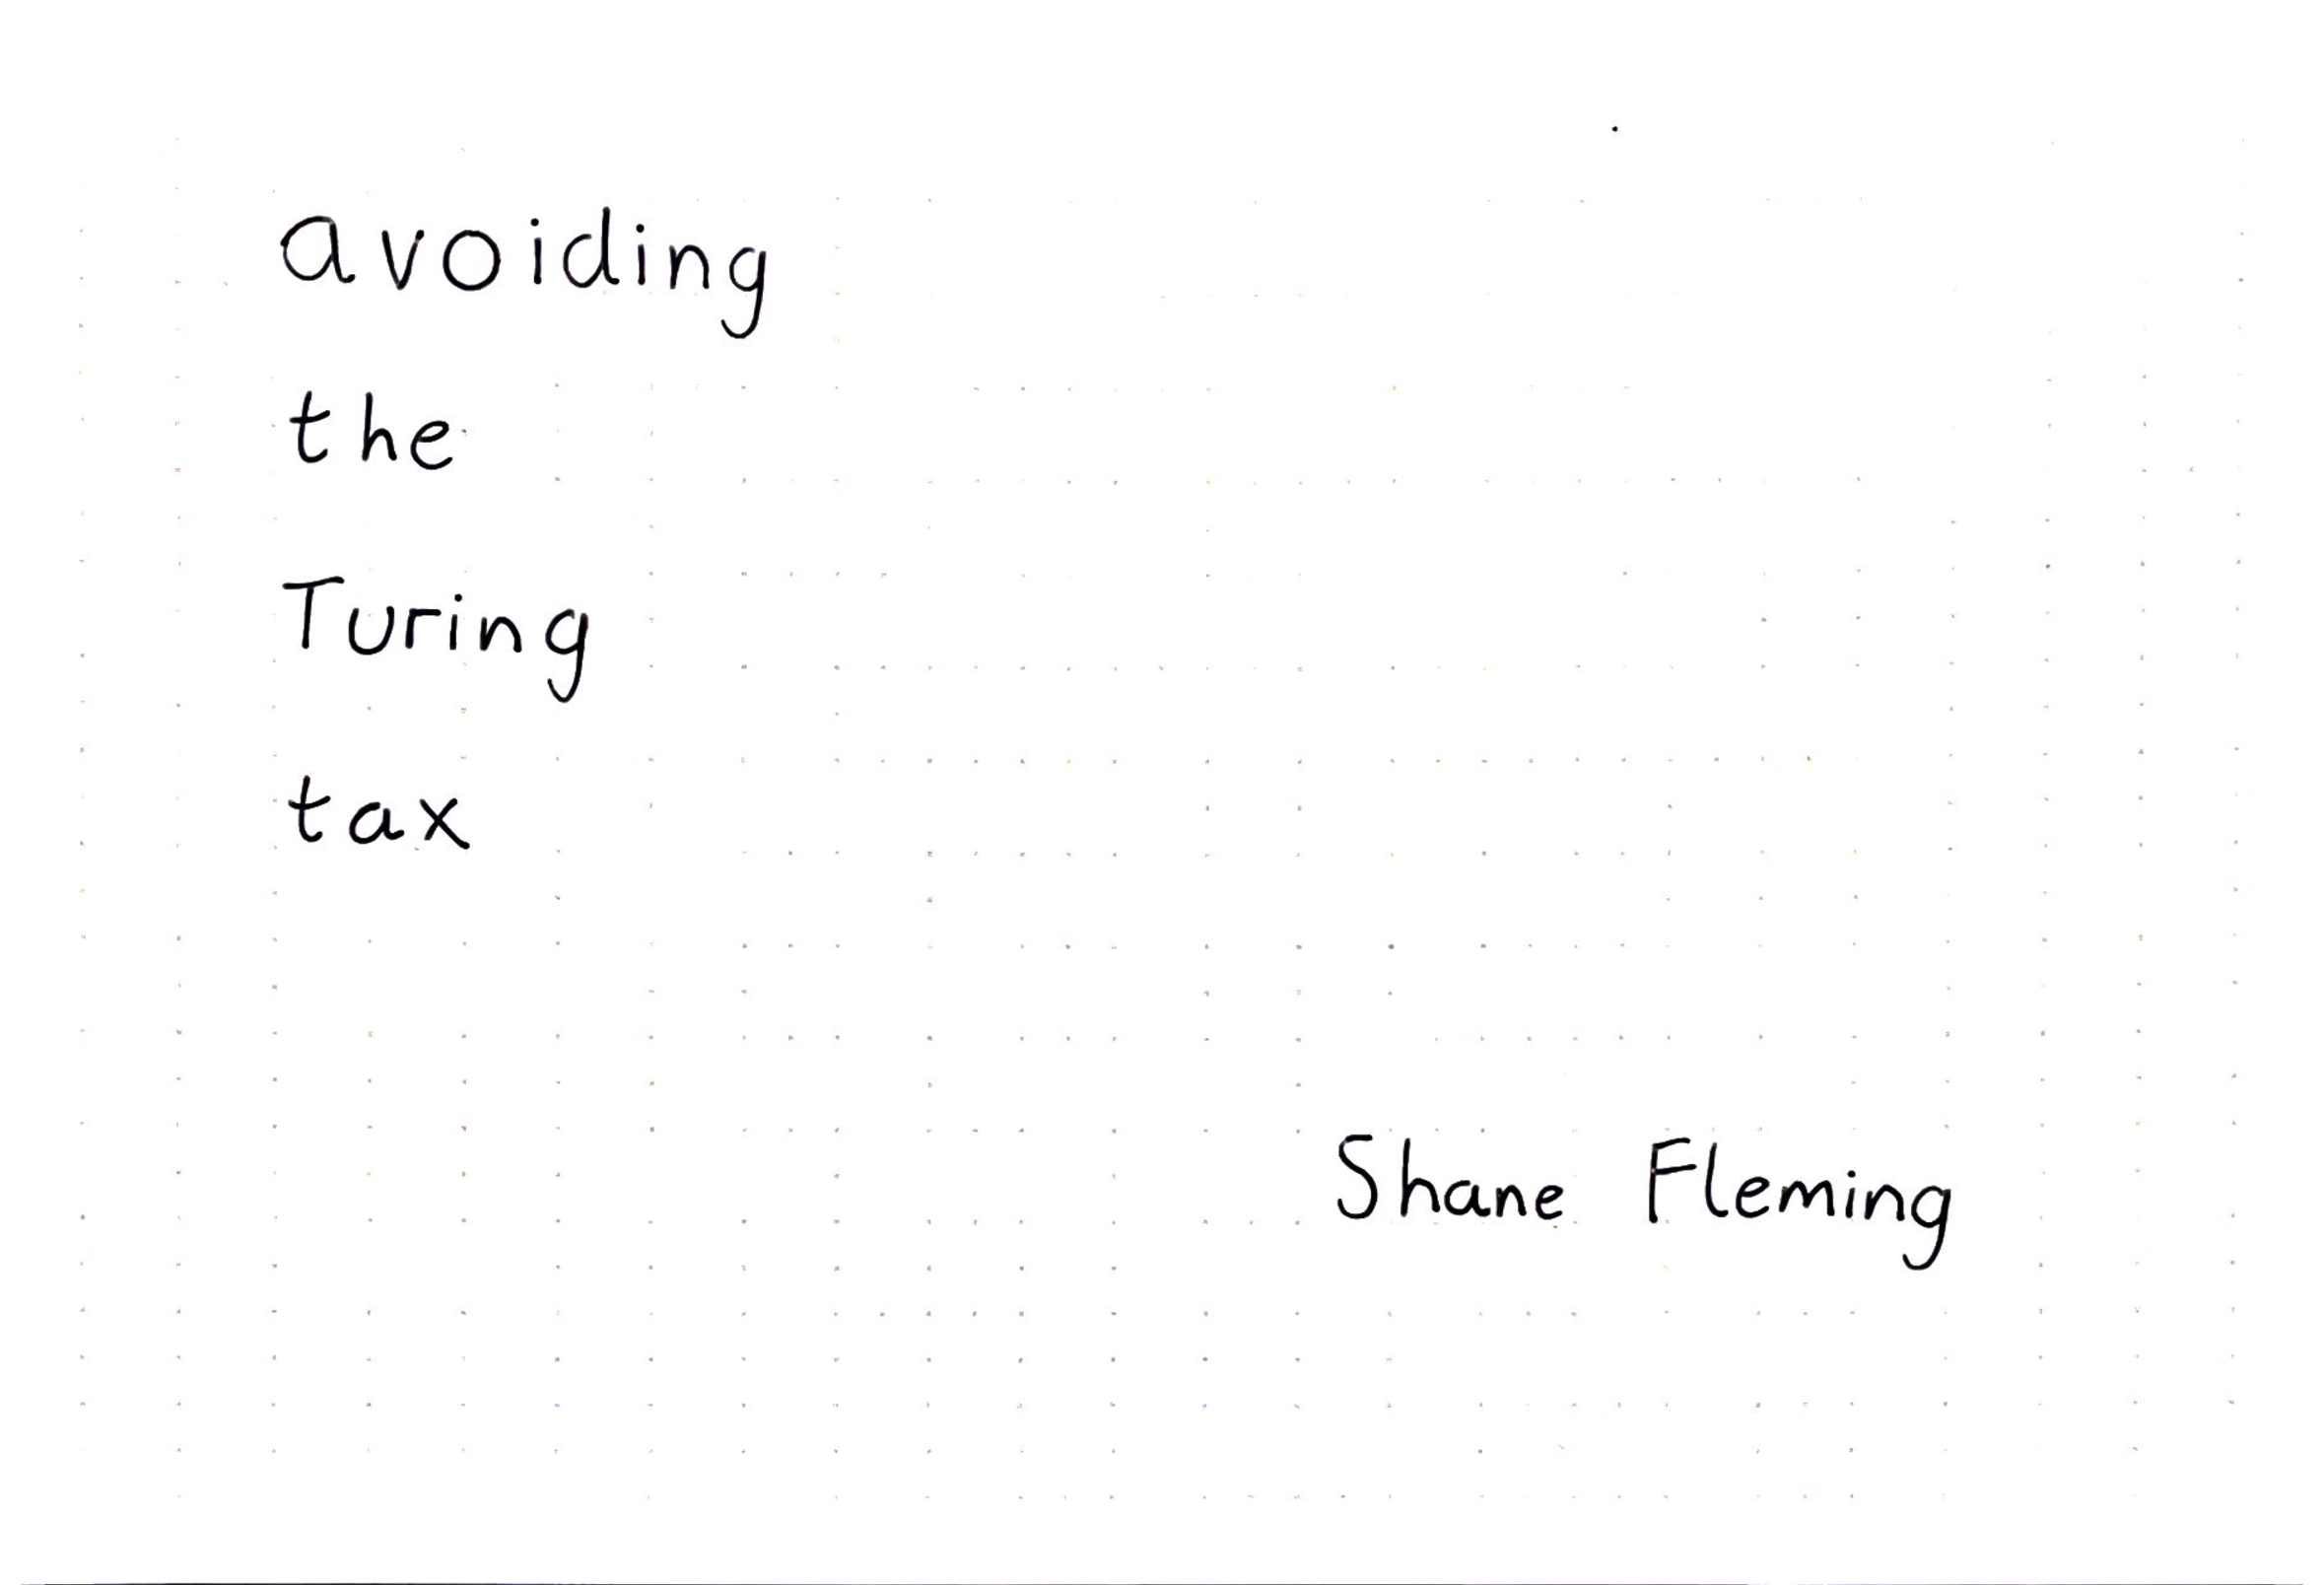 avoiding
the
Turing
tax
Shane Fleming